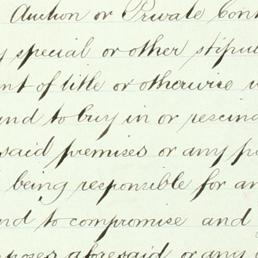 Auction or Private Cont
special or other stipul
nt of title or otherwise
and to buy in or rescind
said premises or any p
being responsible for an
nd to compromise and
poses aforesaid or any